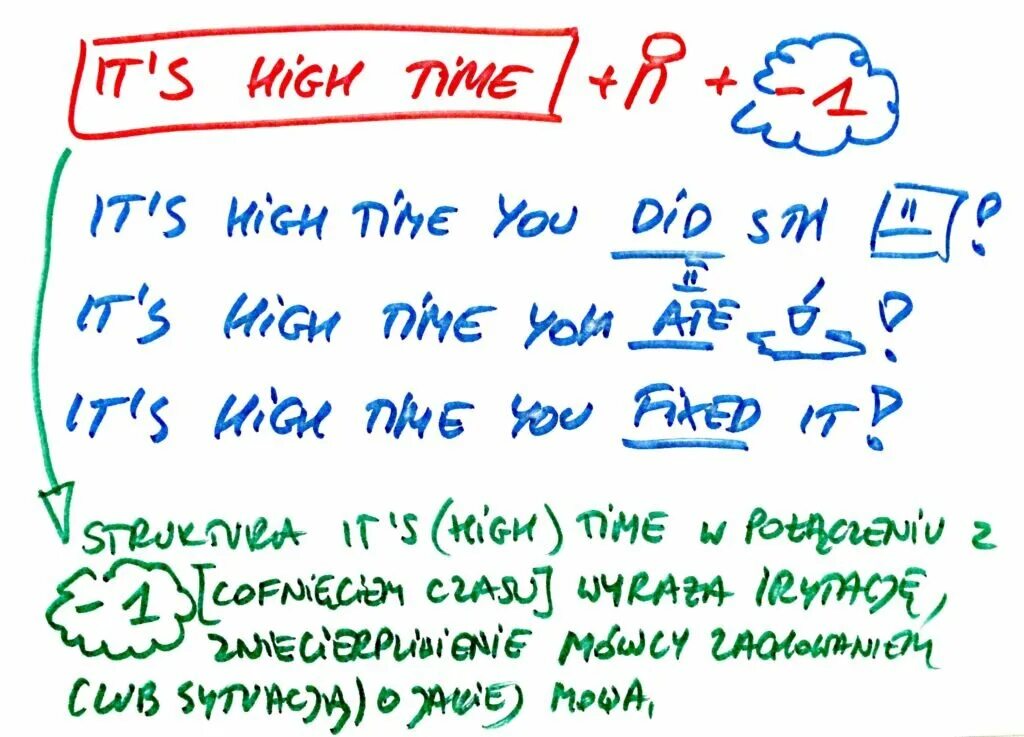 IT'S HIGH TIME + + -1
IT'S HIGH TIME YOU DID STH !
IT'S HIGH TIME YOU ATE !
IT'S HIGH TIME YOU FIXED IT!
STRUKTURA IT'S (HIGH) TIME W POŁĄCZENIU Z
-1 [COFNIĘCIEM CZASU] WYRAŻA IRYTACJĘ,
ZNIECIERPLIWIENIE MÓWCY ZACHOWANIEM
(LUB SYTUACJĄ) O JAKIEJ MOWA.